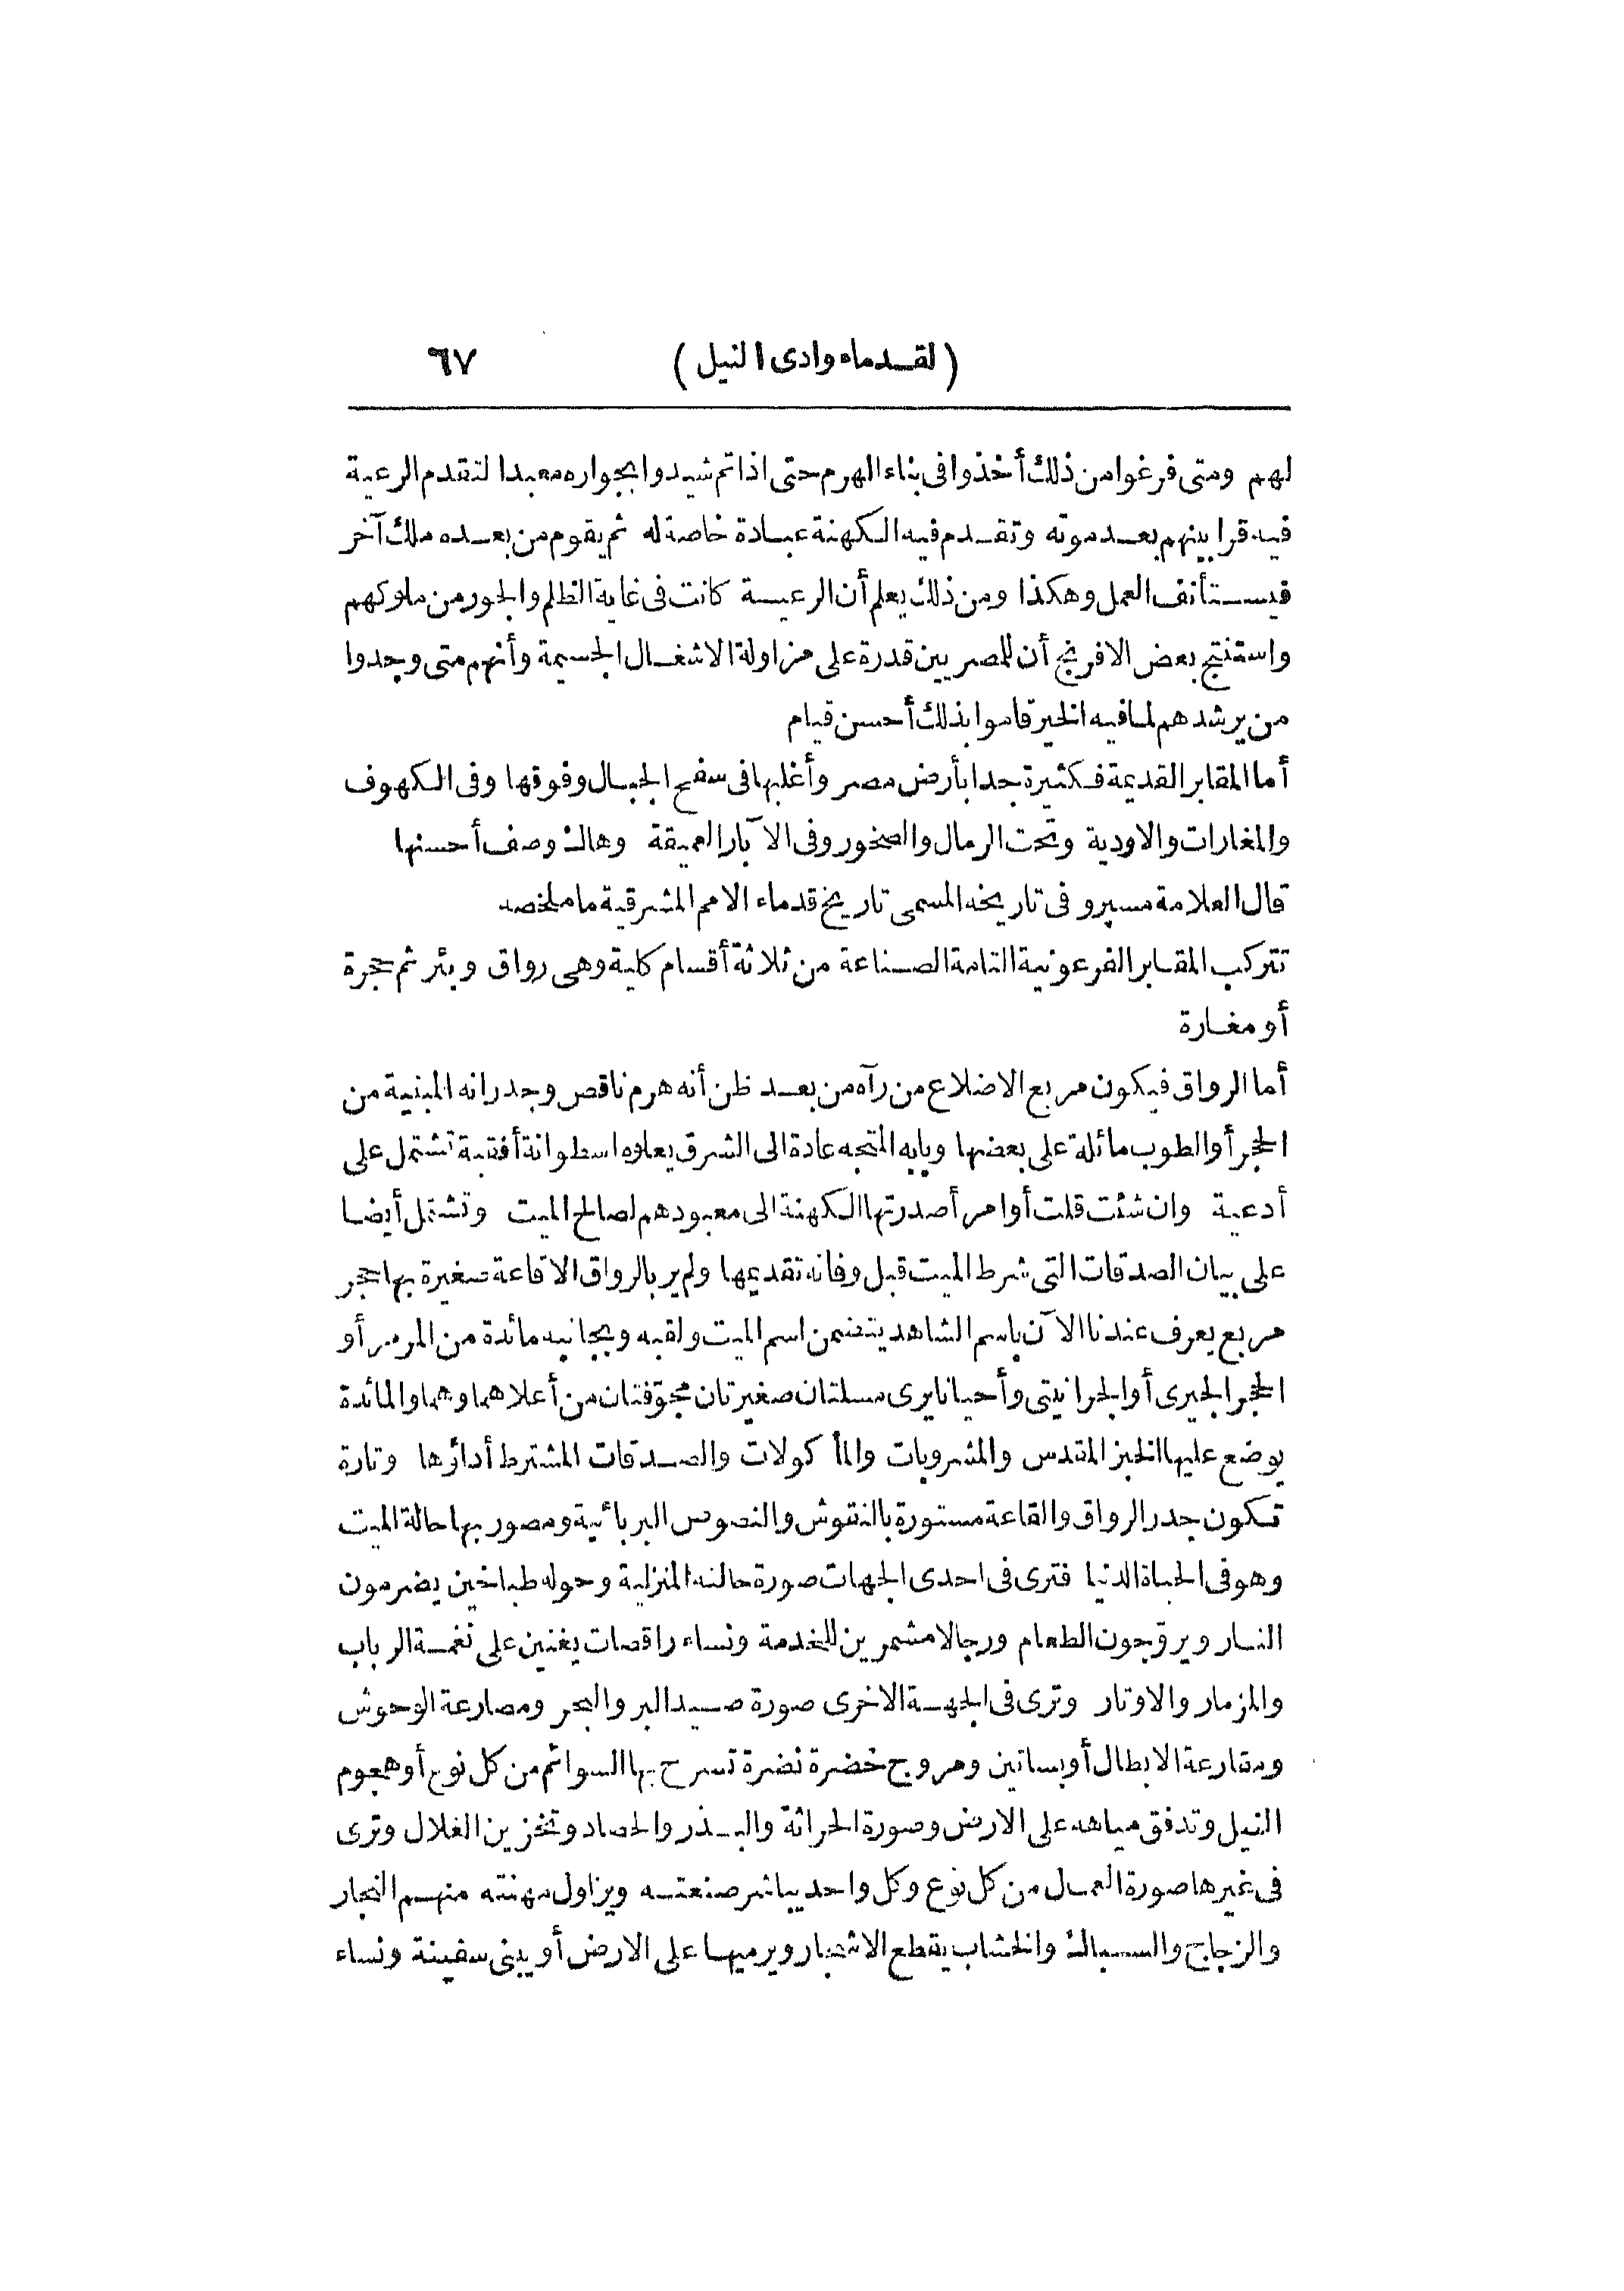 (لقدماء وادى النيل) ٦٧
لهم ومتى فرغوا من ذلك أخذوا فى بناء الهرم حتى اذا تم شيدوا بجواره معبدا لتقدم الرعية
فيه قرابينهم بعد موته وتقدم فيه الكهنة عبادة خاصة له ثم يقوم من بعده ملك آخر
فيستأنف العمل وهكذا ومن ذلك يعلم أن الرعية كانت فى غاية الظلم والجور من ملوكهم
واستنتج بعض الافرنج أن للمصريين قدرة على مزاولة الاشغال الجسيمة وأنهم متى وجدوا
من يرشدهم لما فيه الخير قاموا بذلك أحسن قيام
أما المقابر القديمة فكثيرة جدا بأرض مصر وأغلبها فى سفح الجبال وفوقها وفى الكهوف
والمغارات والاودية وتحت الرمال والصخور وفى الآبار العميقة وهاك وصف أحسنها
قال العلامة مسپرو فى تاريخه المسمى تاريخ قدماء الامم المشرقية ما ملخصه
تتركب المقابر الفرعونية التامة الصناعة من ثلاثة أقسام كلية وهى رواق وبئر ثم حجرة
أو مغارة
أما الرواق فيكون مربع الاضلاع من رآه من بعد ظن أنه هرم ناقص وجدرانه المبنية من
الحجر أو الطوب مائلة على بعضها وبابه المتجه عادة الى الشرق يعلوه اسطوانة أفقية تشتمل على
أدعية وان شئت قلت أوامر أصدرتها الكهنة الى معبودهم لصالح الميت وتشتمل أيضا
على بيان الصدقات التى شرط الميت قبل وفاته تقديمها ولم ير بالرواق الا قاعة صغيرة بها حجر
مربع يعرف عندنا الآن باسم الشاهد يتضمن اسم الميت ولقبه وبجانبه مائدة من المرمر أو
الحجر الجيرى أو الجرانيتى وأحيانا يرى مسلتان صغيرتان مجوّفتان من أعلاهما وهما والمائدة
يوضع عليها الخبز المقدس والمشروبات والمأكولات والصدقات المشترط أداؤها وتارة
تكون جدر الرواق والقاعة مستورة بالنقوش والنصوص البربائية ومصور بها حالة الميت
وهو فى الحياة الدنيا فترى فى احدى الجهات صورة حالته المنزلية وحوله طباخين يضرمون
النار ويروّجون الطعام ورجالا مشمرين للخدمة ونساء راقصات يغنين على نغمة الرباب
والمزمار والاوتار وترى فى الجهة الاخرى صورة صيد البر والبحر ومصارعة الوحوش
ومقارعة الابطال أو بساتين ومروج خضرة نضرة تسرح بها السوائم من كل نوع أو هجوم
النيل وتدفق مياهه على الارض وصورة الحراثة والبذر والحصاد وتخزين الغلال وترى
فى غيرها صورة العمال من كل نوع وكل واحد يباشر صنعته ويزاول مهنته منهم النجار
والزجاج والسباك والخشاب يقطع الاشجار ويرميها على الارض أو يبنى سفينة ونساء